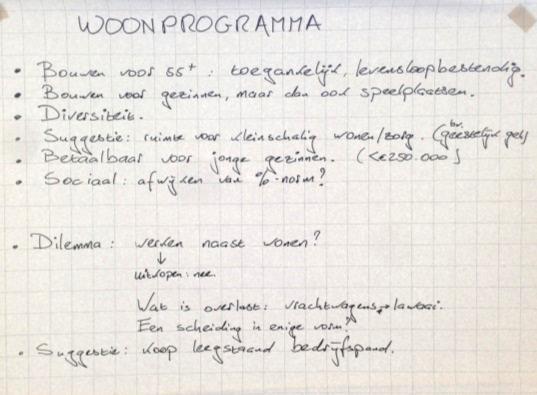 WOONPROGRAMMA
• Bouwen voor 55+ : toegankelijk, levensloopbestendig.
• Bouwen voor gezinnen, maar dan ook speelplaatsen.
• Diversiteit.
• Suggestie: ruimte voor kleinschalig wonen/zorg. (bv. geestelijk geh)
• Betaalbaar voor jonge gezinnen. (<€250.000)
• Sociaal: afwijken van %-norm?
• Dilemma: werken naast wonen?
↓
uitslopen: nee.
Wat is overlast: vrachtwagens, lawaai.
Een scheiding in enige vorm?
• Suggestie: koop leegstaand bedrijfspand.